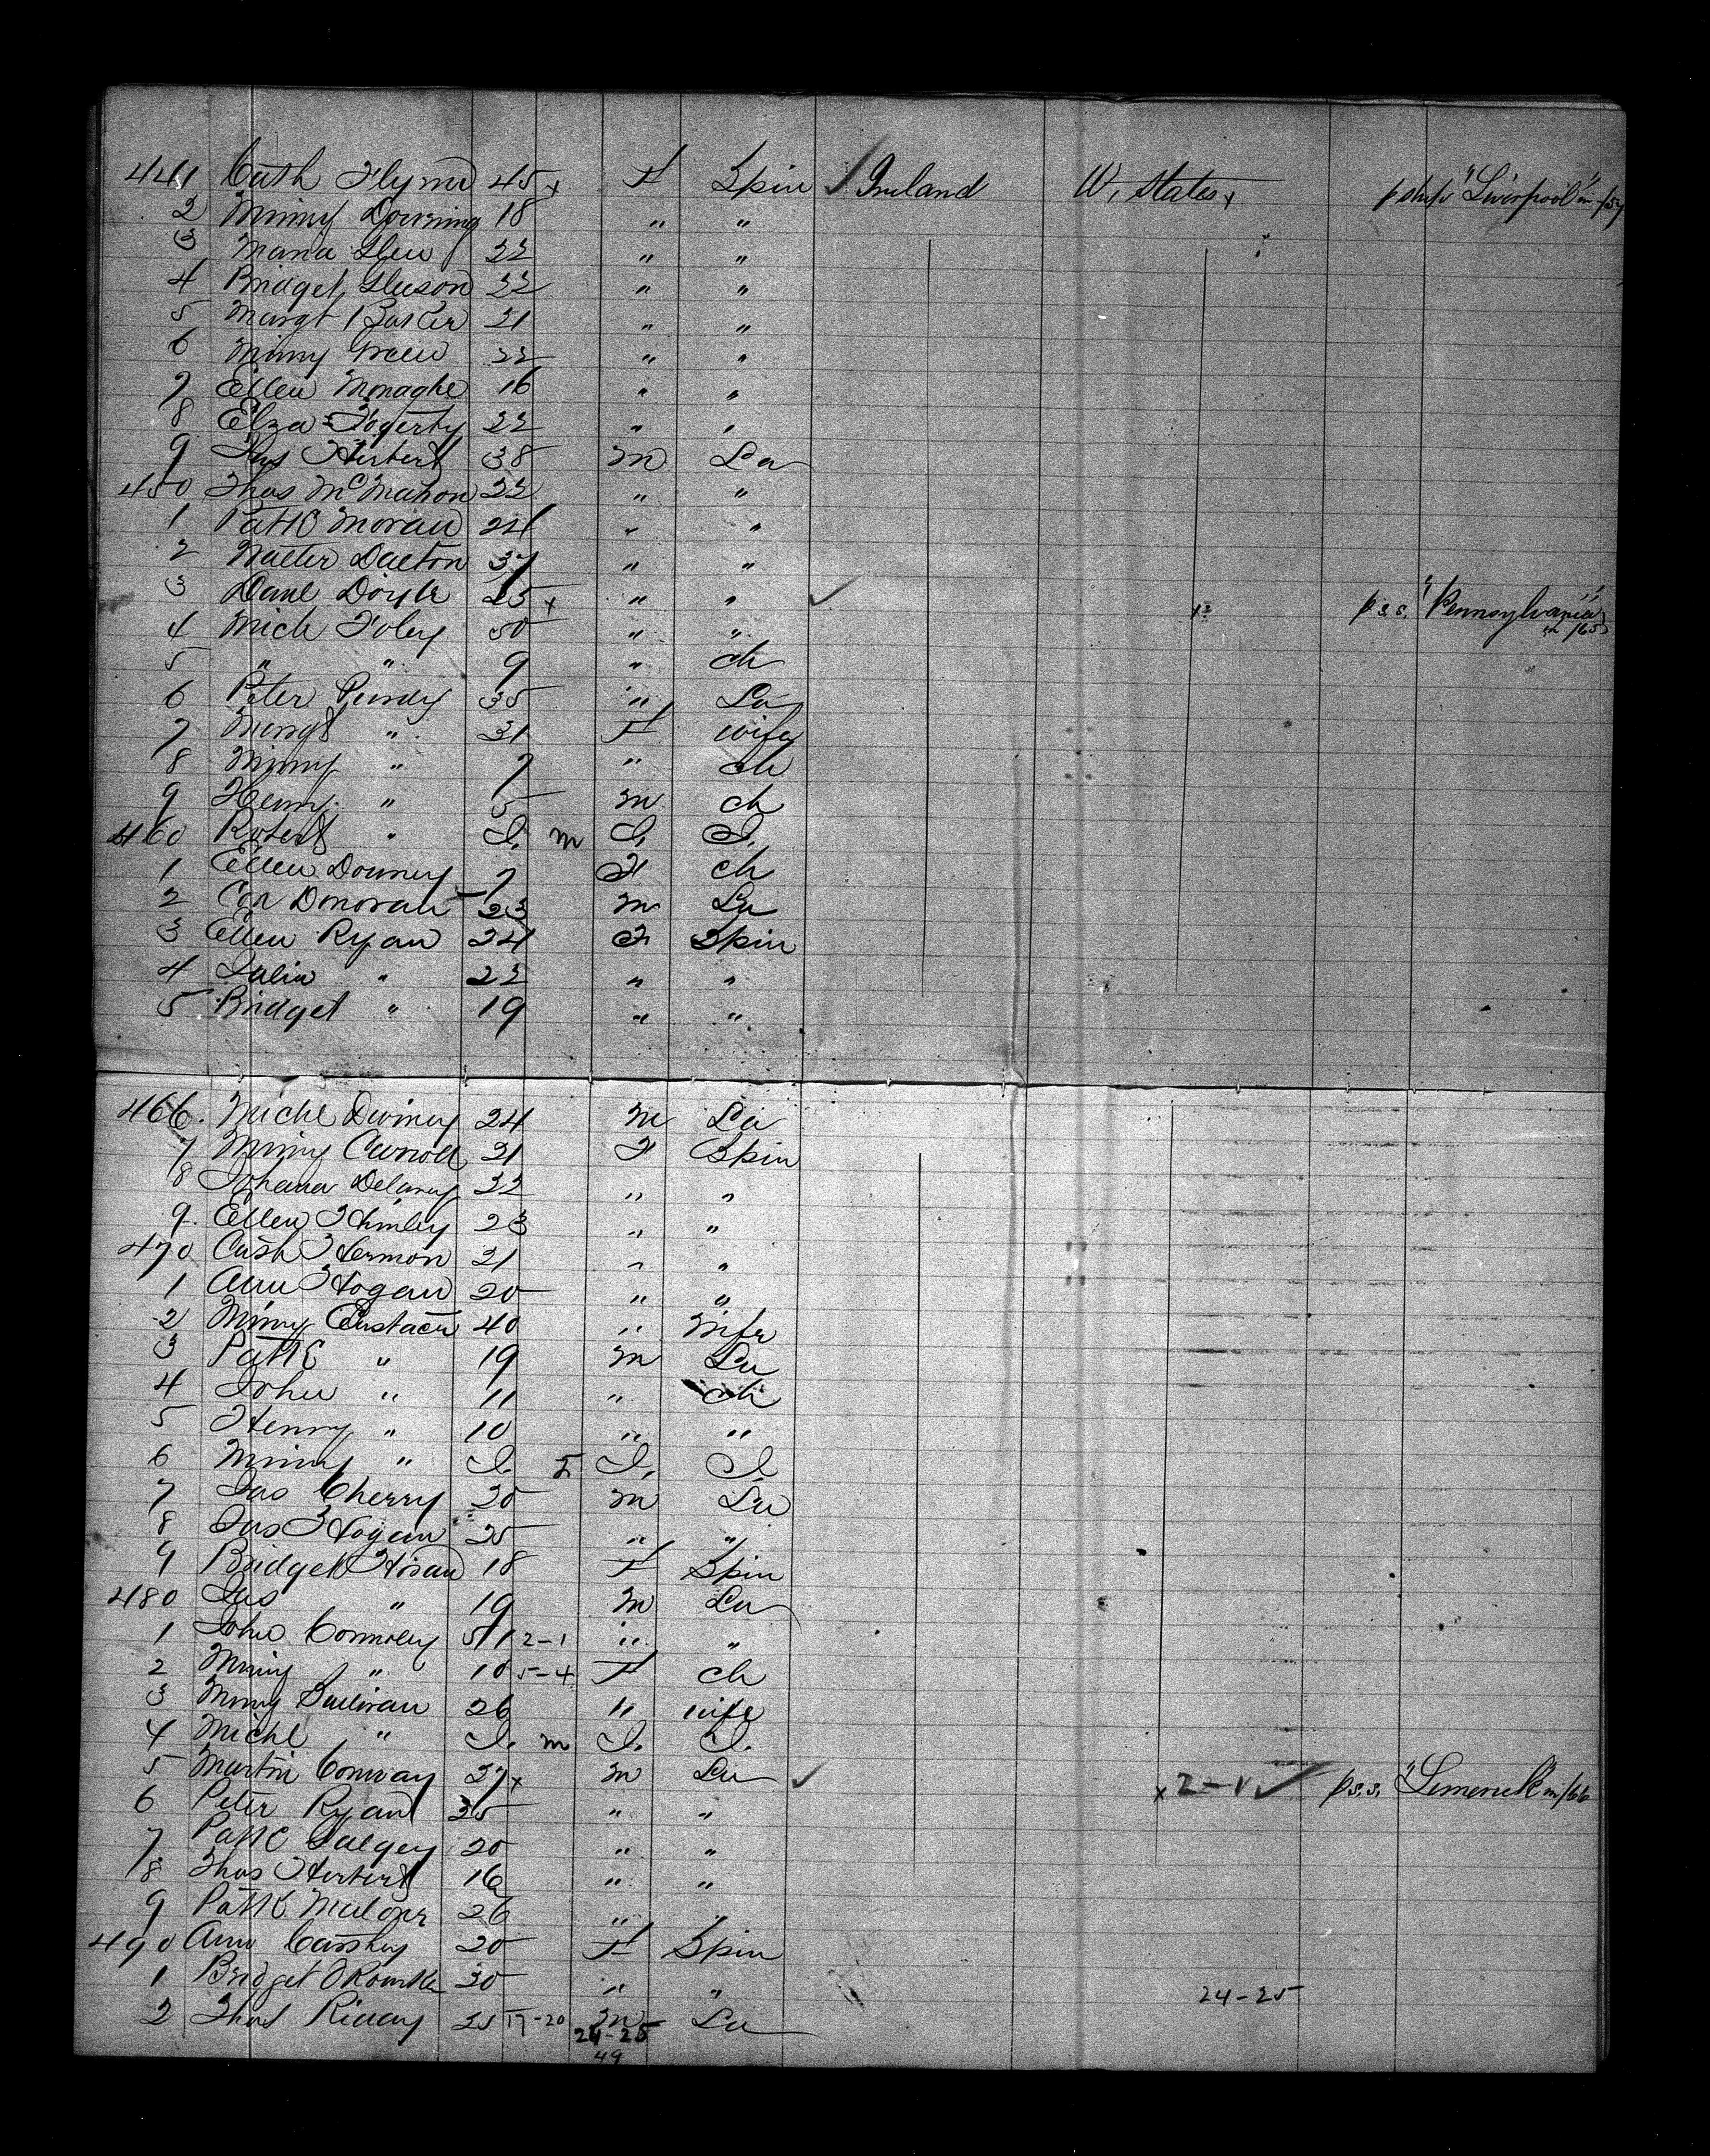 441 Cath Flynn 45 x F Spin ✓ Ireland U. States x p ship "Liverpool" in /57
2 Minny Downing 18 " "
3 Maria 22 " "
4 Bridget Gleeson 22 " "
5 Margt 21 " "
6 Minny 22 " "
7 Ellen Monaghe 16 " "
8 Elza Fogerty 22 " "
9 Thos Herbert 38 M La
450 Thos McMahon 22 " "
1 Patk Moran 24 " "
2 Walter Dalton 37 " "
3 Danl Doyle 25 x " " ✓ p s.s. "Pennsylvania" in /65
4 Mich Foley 50 " "
5 " " 9 " ch
6 Peter Purdy 35 " La
7 Margt " 31 F wife
8 Minny " 7 " ch
9 Henry " 5 M ch
460 Robert " I. m I. I.
1 Ellen Downey 7 F ch
2 Con Donovan 23 M La
3 Ellen Ryan 24 F Spin
4 Julia " 22 " "
5 Bridget " 19 " "
466. Michl 24 M La
7 Minny Carroll 21 F Spin
8 Johana Delany 22 " "
9. Ellen 23 " "
470 Cath 21 " "
1 Ann Hogan 20 " "
2 Minny Eustace 40 " Wife
3 Patk " 19 M La
4 John " 11 " ch
5 Henry " 10 " "
6 Minny " I. F I. I
7 Jas Cherry 20 M La
8 Jas Hogan 25 " "
9 Bridget 18 F Spin
480 Jas " 19 M La
1 John Connoley 51 2-1 " "
2 Minny " 10 5-4 F ch
3 Minny Sullivan 26 " wife
4 Michl " I. m I. I.
5 Martin Conway 27 x M La ✓ x 2-1 ✓ p s.s. "Limerick" in /66
6 Peter Ryan 25 " "
7 Patk 20 " "
8 Thos Herbert 16 " "
9 Patk Malone 26 " "
490 Ann 20 F Spin
1 Bridget ORourke 20 " "
24-25
2 Thos 25 19-20 M La
24-25
49